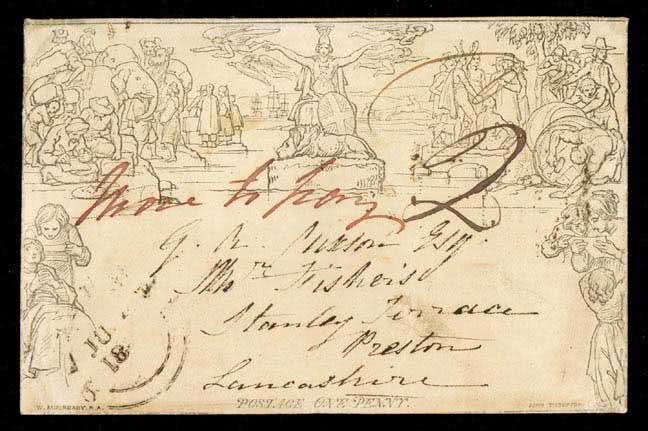 More to pay 2
G. R. Esq.
Mr Fishers
Stanley Terrace
Preston
Lancashire
JU
18
W. MULREADY, R.A. POSTAGE ONE PENNY. JOHN THOMPSON